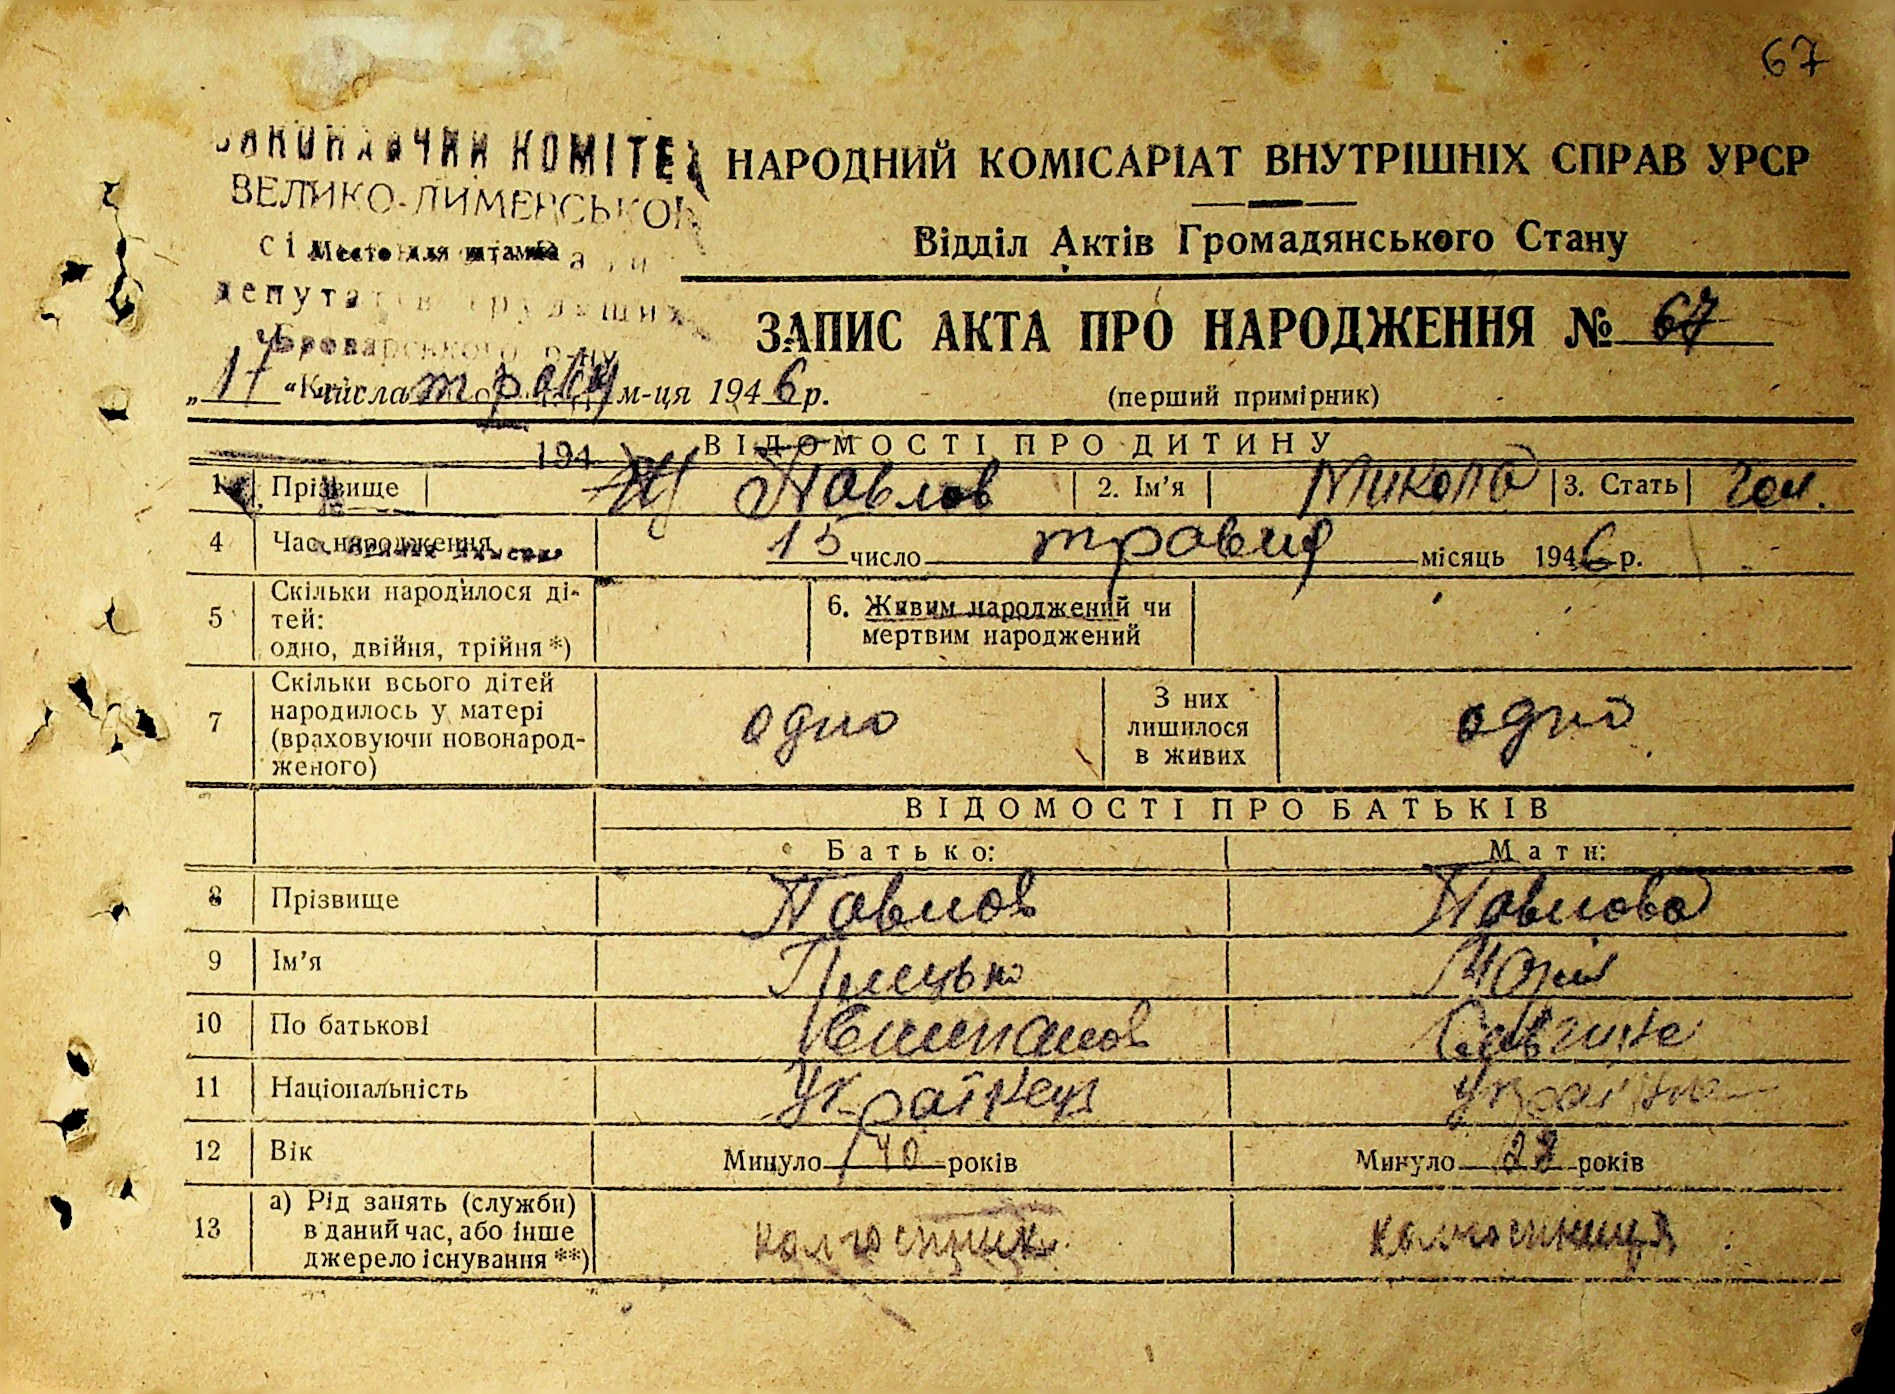 67
ВИКОНАВЧИЙ КОМІТЕТ
ВЕЛИКО-ДИМЕРСЬКОЇ
Место для штампа
депутатів трудящих
Броварського р-ну
НАРОДНИЙ КОМІСАРІАТ ВНУТРІШНІХ СПРАВ УРСР
Відділ Актів Громадянського Стану
ЗАПИС АКТА ПРО НАРОДЖЕННЯ № 67
„17“ числа травня м-ця 1946 р. (перший примірник)
194
ВІДОМОСТІ ПРО ДИТИНУ
1 Прізвище Павлов 2. Ім'я Микола 3. Стать чол.
4 Час народження 15 число травня місяць 1946 р.
5 Скільки народилося ді-
тей:
одно, двійня, трійня *)
6. Живим народжений чи
мертвим народжений
7 Скільки всього дітей
народилось у матері
(враховуючи новонарод-
женого)
одно
З них
лишилося
в живих
одно
ВІДОМОСТІ ПРО БАТЬКІВ
Батько: Мати:
8 Прізвище Павлов Павлова
9 Ім'я Грицько Марія
10 По батькові
11 Національність Українець Українка
12 Вік Минуло 40 років Минуло 28 років
13 а) Рід занять (служби)
в даний час, або інше
джерело існування **)
колгоспник колгоспниця